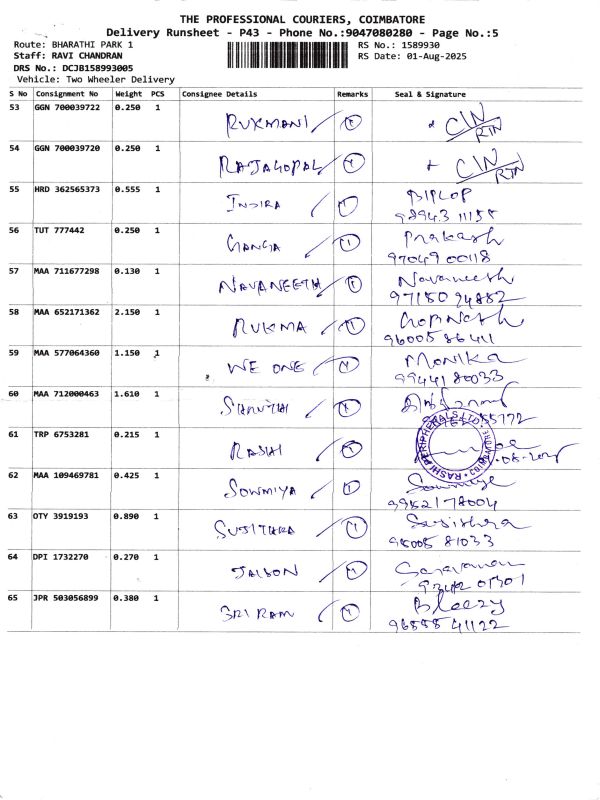 THE PROFESSIONAL COURIERS, COIMBATORE
Delivery Runsheet - P43 - Phone No.:9047080280 - Page No.:5
Route: BHARATHI PARK 1 RS No.: 1589930
Staff: RAVI CHANDRAN RS Date: 01-Aug-2025
DRS No.: DCJB158993005
Vehicle: Two Wheeler Delivery
S No Consignment No Weight PCS Consignee Details Remarks Seal & Signature
53 GGN 700039722 0.250 1 RUKMANI CIN
RTN
54 GGN 700039720 0.250 1 RAJAGOPAL CIN
RTN
55 HRD 362565373 0.555 1 INDIRA BIPLOP
98943 11155
56 TUT 777442 0.250 1 GANGA Prakash
97049 00118
57 MAA 711677298 0.130 1 NAVANEETH Navaneeth
97150 94882
58 MAA 652171362 2.150 1 RUKMA Gopinath
96005 86411
59 MAA 577064360 1.150 1 WE ONE Monika
99441 80033
60 MAA 712000463 1.610 1 SHRUTHI
55772
61 TRP 6753281 0.215 1 RASHI
RASHI PERIPHERALS LTD. COIMBATORE
62 MAA 109469781 0.425 1 SOWMIYA Sowmiya
99521 78004
63 OTY 3919193 0.890 1 SUJITHRA Sujithra
96005 81033
64 DPI 1732270 0.270 1 JAISON Saravanan
65 JPR 503056899 0.380 1 SRI RAM Bleezy
96558 41122